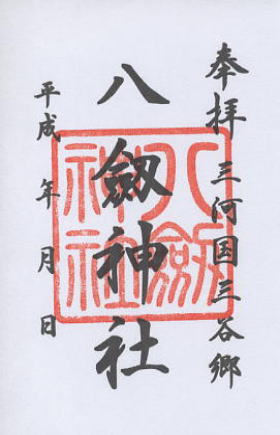 奉拝 三河国三谷郷
八劔神社
平成 年 月 日
八劔
神社